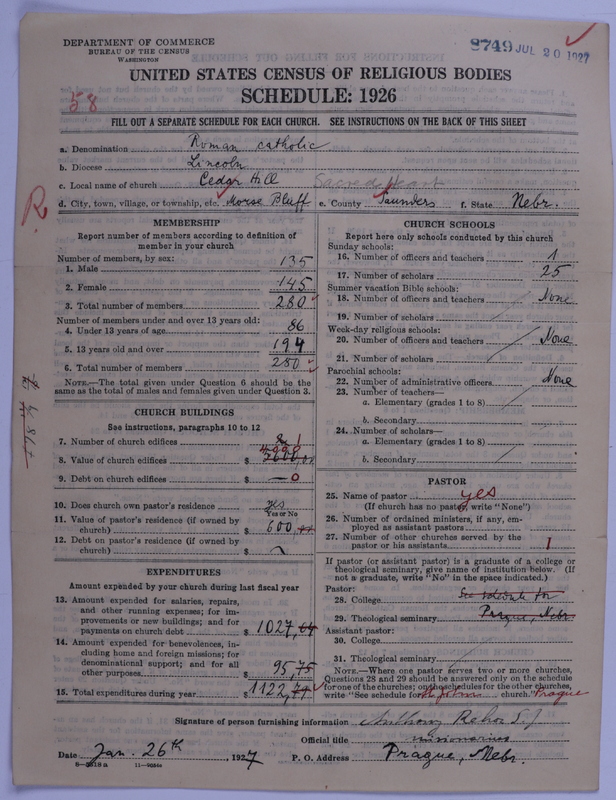 DEPARTMENT OF COMMERCE
BUREAU OF THE CENSUS
WASHINGTON
8749 JUL 20 1927
UNITED STATES CENSUS OF RELIGIOUS BODIES
SCHEDULE: 1926
58
FILL OUT A SEPARATE SCHEDULE FOR EACH CHURCH. SEE INSTRUCTIONS ON THE BACK OF THIS SHEET
a. Denomination Roman Catholic
b. Diocese Lincoln
c. Local name of church Cedar Hill Sacred Heart
d. City, town, village, or township, etc. Morse Bluff e. County Saunders f. State Nebr.
R
MEMBERSHIP
Report number of members according to definition of member in your church
Number of members, by sex:
1. Male 135
2. Female 145
3. Total number of members 280
Number of members under and over 13 years old:
4. Under 13 years of age 86
5. 13 years old and over 194
6. Total number of members 280
NOTE.—The total given under Question 6 should be
same as the total of males and females given under Question 3.
CHURCH BUILDINGS
See instructions, paragraphs 10 to 12
7. Number of church edifices 1
8. Value of church edifices $
9. Debt on church edifices $ — 0
10. Does church own pastor's residence yes
Yes or No
11. Value of pastor's residence (if owned by
church) $ 600
12. Debt on pastor's residence (if owned by
church) $
EXPENDITURES
Amount expended by your church during last fiscal year
13. Amount expended for salaries, repairs,
and other running expenses; for im-
provements or new buildings; and for
payments on church debt $ 1027,
14. Amount expended for benevolences, in-
cluding home and foreign missions; for
denominational support; and for all
other purposes $ 95,75
15. Total expenditures during year $ 1122,
CHURCH SCHOOLS
Report here only schools conducted by this church
Sunday schools:
16. Number of officers and teachers 1
17. Number of scholars 25
Summer vacation Bible schools:
18. Number of officers and teachers None
19. Number of scholars
Week-day religious schools:
20. Number of officers and teachers None
21. Number of scholars
Parochial schools:
22. Number of administrative officers None
23. Number of teachers—
a. Elementary (grades 1 to 8)
b. Secondary
24. Number of scholars—
a. Elementary (grades 1 to 8)
b. Secondary
PASTOR
25. Name of pastor yes
(If church has no pastor, write "None")
26. Number of ordained ministers, if any, em-
ployed as assistant pastors
27. Number of other churches served by the
pastor or his assistants 1
If pastor (or assistant pastor) is a graduate of a college or
theological seminary, give name of institution below. (If
not a graduate, write "No" in the space indicated.)
Pastor:
28. College See schedule for
29. Theological seminary Prague, Nebr.
Assistant pastor:
30. College
31. Theological seminary
NOTE.—Where one pastor serves two or more churches,
Questions 28 and 29 should be answered only on the schedule
for one of the churches; on the schedules for the other churches,
write "See schedule for St John church." Prague
Signature of person furnishing information Anthony Rehor S.J.
Official title missionarius
Date Jan. 26th, 1927 P. O. Address Prague, Nebr.
8—5818 a